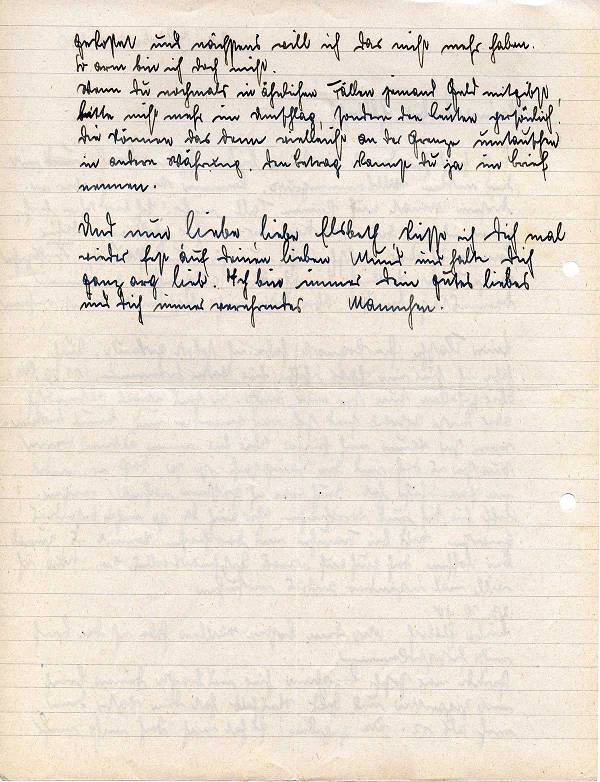 gekostet und nächstens will ich das nicht mehr haben.
So arm bin ich doch nicht.
Wenn du nochmals in ähnlichen Fällen jemand Geld mitgibst,
bitte nicht mehr im Umschlag, sondern den Leuten persönlich.
Die können das dann vielleicht an der Grenze umtauschen
in andere Währung. Den Betrag kannst du ja im Brief
nennen.
Und nun liebe liebe Elsbeth küsse ich Dich mal
wieder fest auf deinen lieben Mund und halte Dich
ganz arg lieb. Ich bin immer dein gutes liebes
und dich immer verehrendes Mannchen.